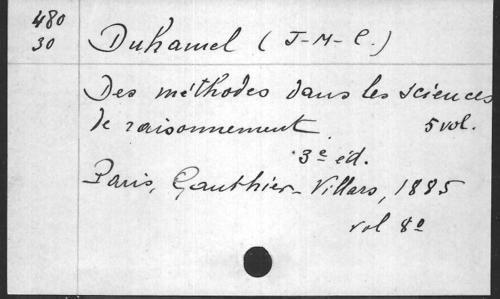 480
30
Duhamel (J-M-C.)
Des méthodes dans les sciences
de raisonnement 5 vol.
3e éd.
Paris, Gauthier-Villars, 1885
vol 8º